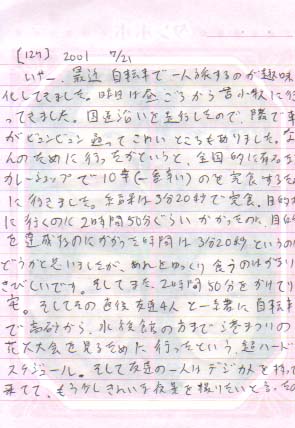 [127] 2001 7/21
いやー、最近 自転車で一人旅するのが趣味
化してきました。昨日は昼ごろから苫小牧に行
ってきました。国道沿いを走行したので、隣で車
がビュンビュン走ってこわいところもありました。な
んのために行ったかというと、全国的に有名な
カレーショップで10辛(一番辛い)のを完食するため
に行きました。結果は3分20秒で完食。目的地
に行くのに2時間50分ぐらいかかったのに、目的
を達成するのにかかった時間は3分20秒というのは
どうかと思いましたが、あれをゆっくり食うのはかなり
きびしいです。そしてまた、2時間50分をかけて帰
宅。そしてその直後友達4人と一緒に自転車
で から、水族館の方まで港まつりの
花火大会を見るために行ったという、超ハード
スケジュール。そして友達の一人はデジカメを持って
来てて、もう少しきれいな夜景を撮りたいと言、その